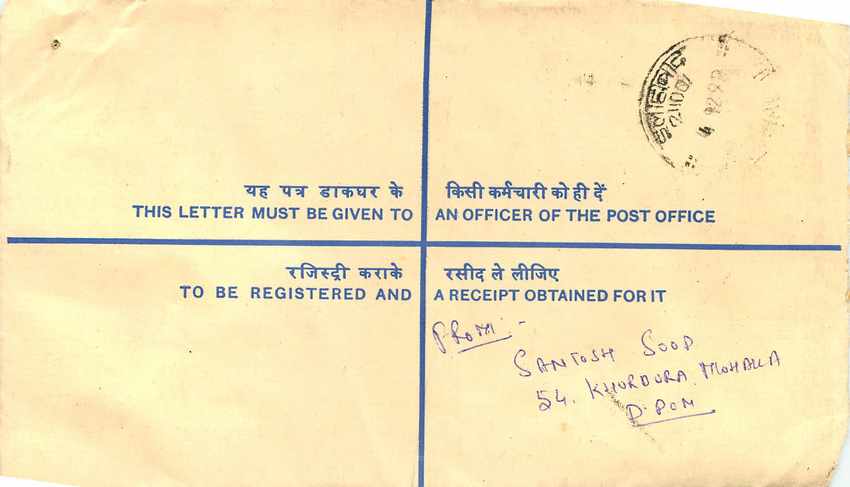 इलाहाबाद
211001
यह पत्र डाकघर के किसी कर्मचारी को ही दें
THIS LETTER MUST BE GIVEN TO AN OFFICER OF THE POST OFFICE
रजिस्ट्री कराके रसीद ले लीजिए
TO BE REGISTERED AND A RECEIPT OBTAINED FOR IT
FROM :-
SANTOSH SOOD
54. KHURDURA. MOHALLA